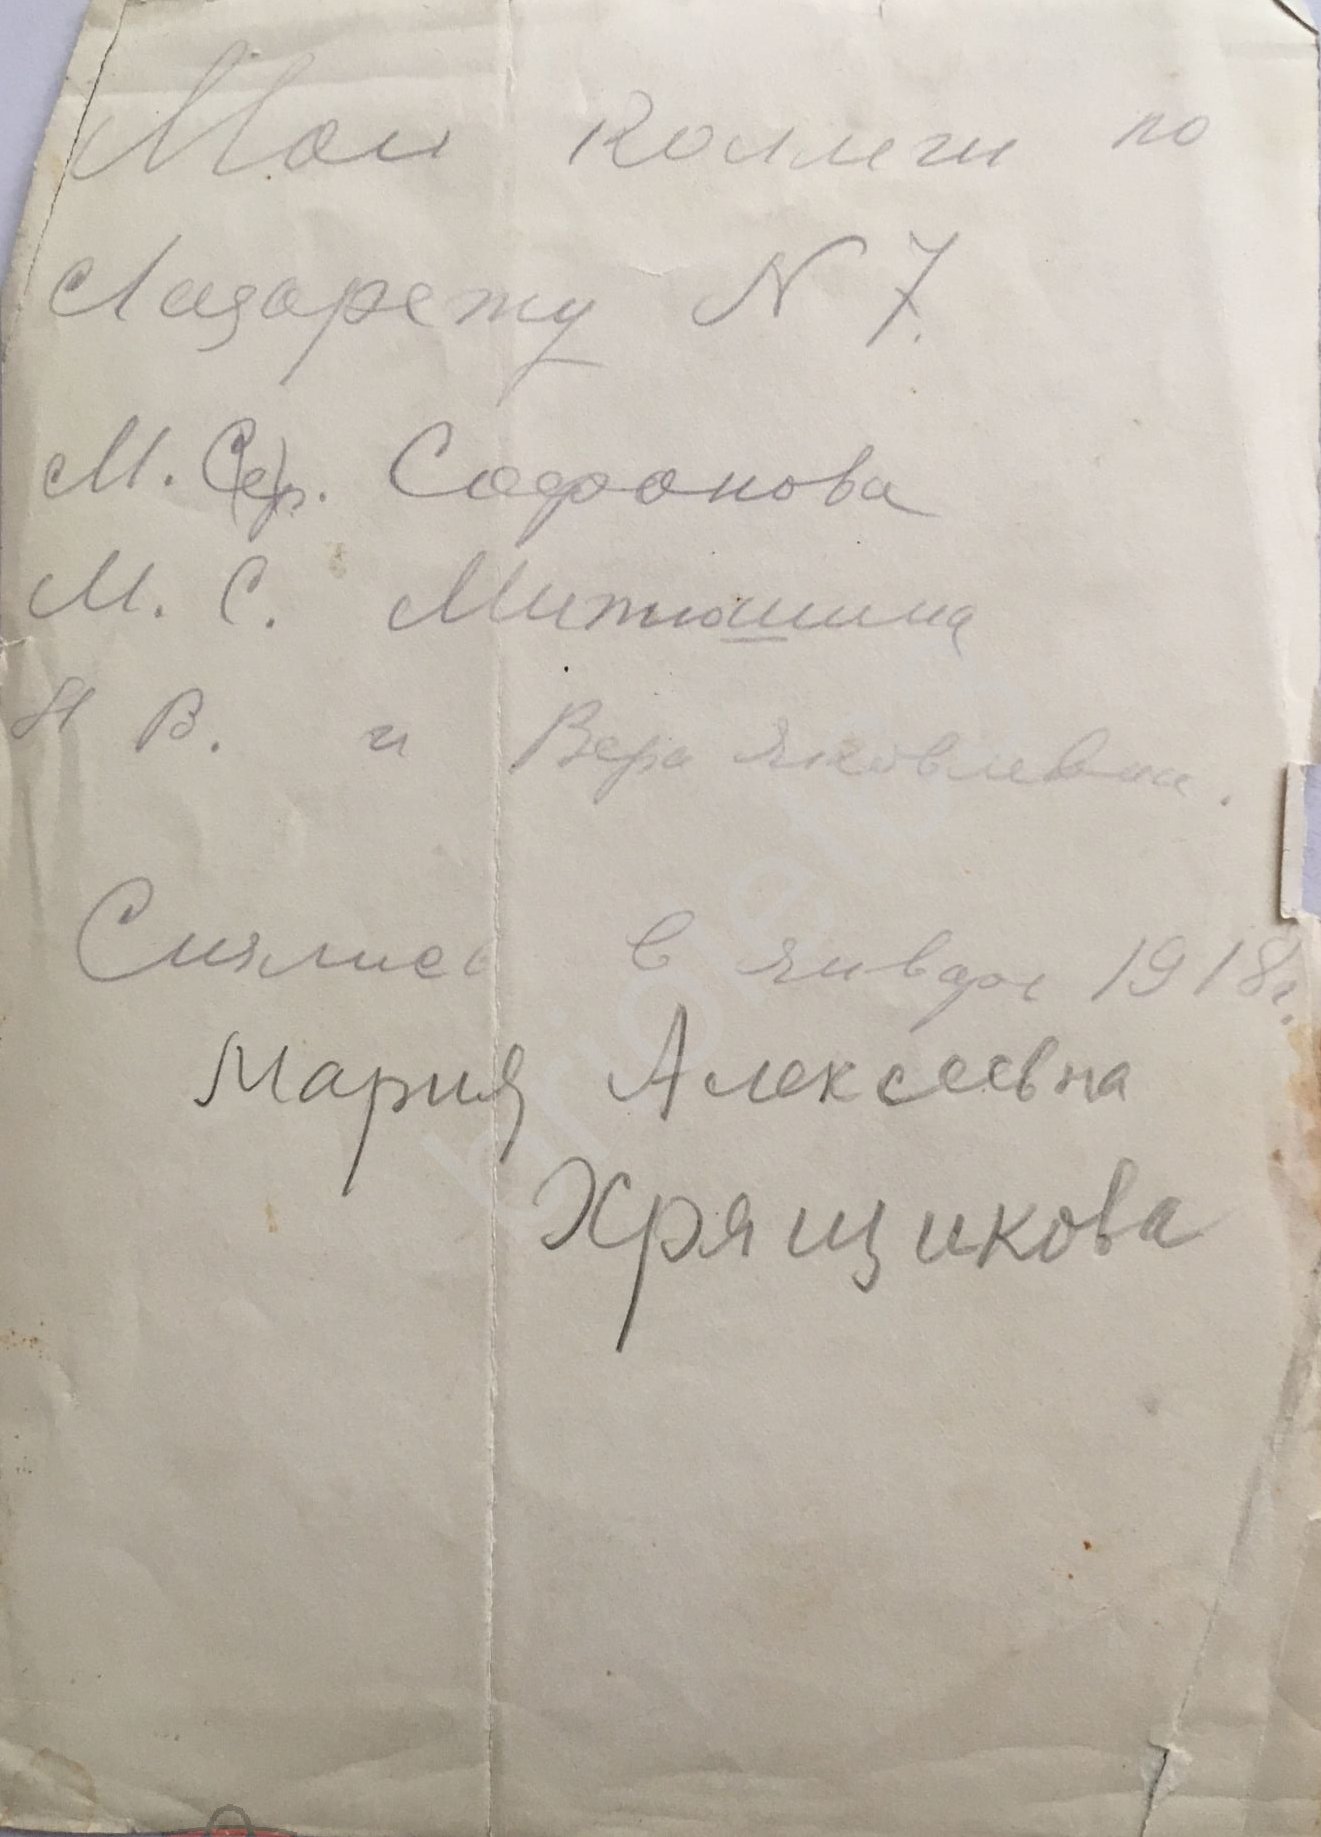 Мои коллеги по
Лазарету N 7.
М. Сер. Сафонова
М. С. Митюшина
Н В. и Вера Яковлевна.
Снялись в январе 1918 г.
Мария Алексеевна
Хрящикова